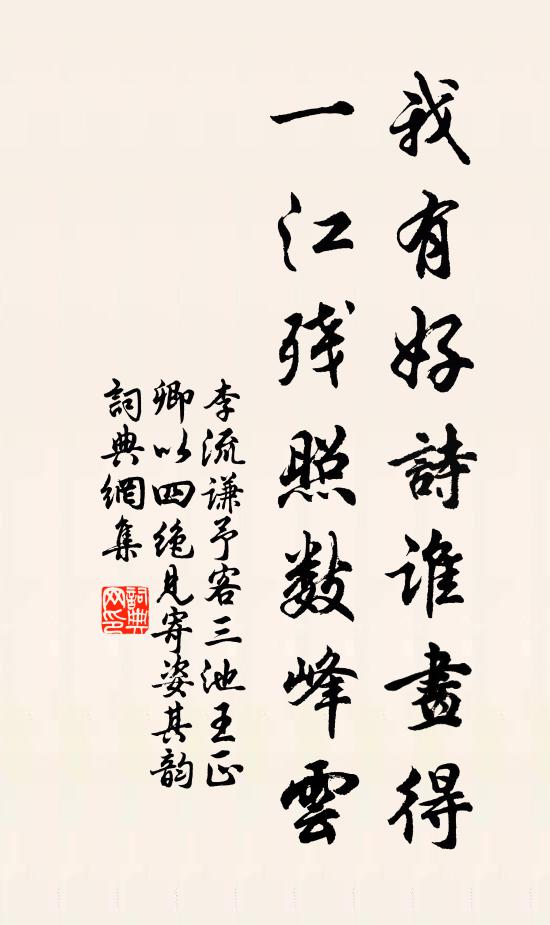 我有好詩誰畫得
一江残照數峰雲
李流谦予客三池王正
卿以四绝見寄姿其韵
詞典網集
詞典
网印